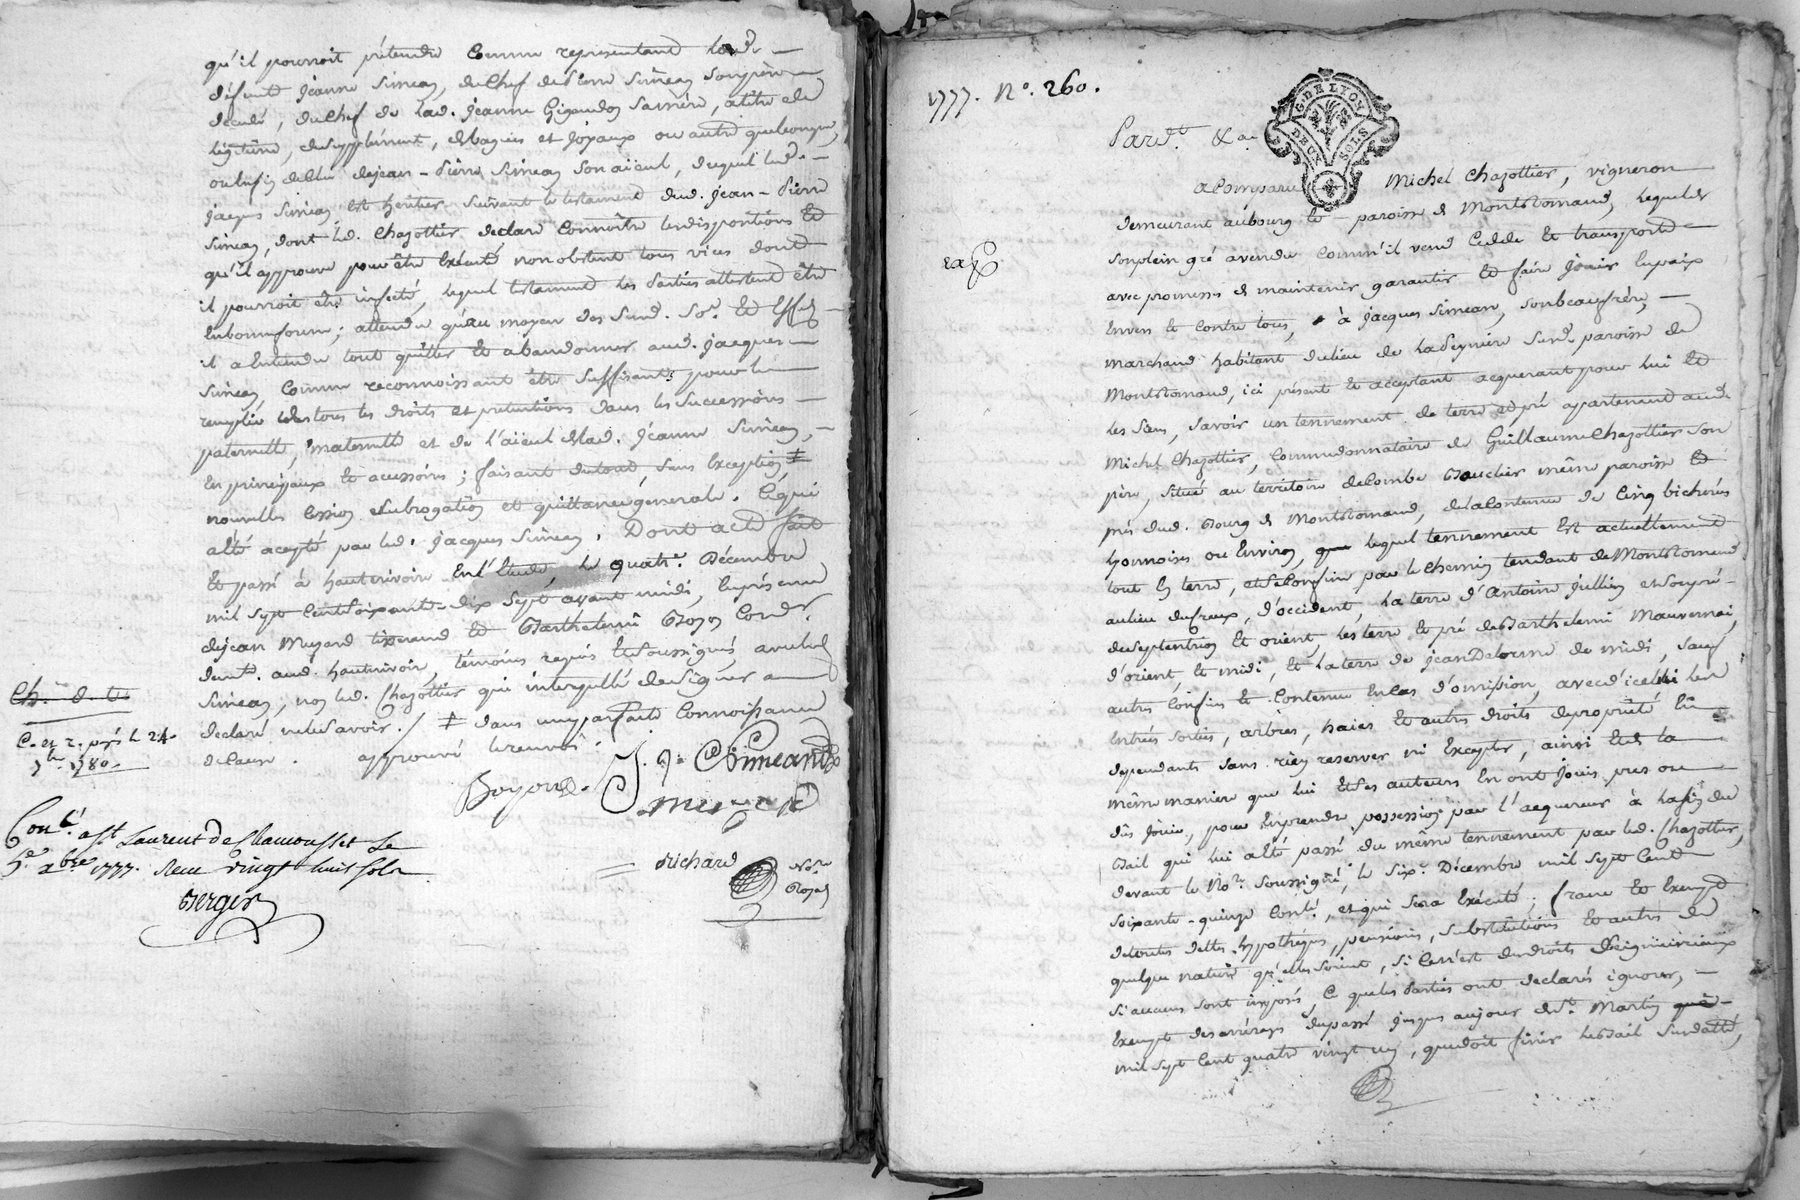 qu'il pourroit prétendre comme representant lad.
défunte Jeanne Simean, du chef de Pierre Simean son père
décédé, du chef de lad. Jeanne Gigandon sa mère, a titre de
légitime, de supplément, de bagues et joyaux ou autre quelconque,
ou enfin de celui de Jean-Pierre Simean son aïeul, duquel led.
Jacques Simean est heritier suivant le testament dud. Jean-Pierre
Simean, dont led. Chazottier declare connoître les dispositions et
qu'il approuve pour être exécuté nonobstant tous vices dont
il pourroit être infecté, lequel testament les parties attestent être
en bonne forme; attendu qu'au moyen des susd. so.e et effets
il a entendu tout quitter et abandonner aud. Jacques
Simean, comme reconnoissant être suffisant pour le
remplir de tous les droits et pretentions dans les successions
paternelle, maternelle et de l'aïeul de lad. Jeanne Simean,
en principaux et acessoires; faisant du tout, sans exception, ‡
nouvelle cession subrogation et quittance générale. Ce qui
a été acepté par led. Jacques Simean. Dont acte fait
et passé à hauterivoire en l'étude, le quatr.e Décembre
mil sept cent soixante-dix sept avant midi, en présence
de Jean Muzard tixerand et Barthelemi Boyon cord.r
deme.t aud. hauterivoir, témoins requis et soussignés, avec led.
Simean, non led. Chazottier qui interpellé de signer a
declaré ne le savoir. / ‡ dans une parfaite connoissance
de cause. approuvé le renvoi.
Boyon. J. J. Simeand
muzard
Richard No.re Royal
Ch. d. t.
C. et r. pr.s le 24
7.bre 1780
Con.lé a S.t Laurent de Chamousset le
5.e Xbre 1777. Reçu vingt huit sols
Berger
1777. N.o 260.
Pard.t &a
G. DE LYON
DEUX SOLS
a comparu Michel Chazottier, vigneron
demeurant au bourg et paroisse de Montromand, lequel de
son plein gré a vendu comm'il vend cedde et transporte
exp
avec promesses de maintenir garantir et faire jouir en paix
envers et contre tous, à Jacques Simean, son beau frère,
marchand habitant du lieu de la Peyniere susd. paroisse de
Montromand, ici présent et acceptant acquerant pour lui et
les siens, savoir un tennement de terre et pré apartenant aud.
Michel Chazottier, comme donnataire de Guillaume Chazottier son
père, situé au territoire de Combe Bouchir même paroisse et
près dud. Bourg de Montromand, de la contenue de cinq bicherées
lyonnoises ou environ, lequel tennement est actuellement
tout en terre, et se confine par le chemin tendant de Montromand
au lieu dufreux, d'occident, la terre d'Antoine Jullien et son pré
de septentrion et orient, les terre et pré de Barthelemi Mauvernai,
d'orient, et midi, et la terre de Jean Delorme de midi, sauf
autres confins et contenue en cas d'omission, avec d'icelui les
entrées sorties, arbres, haies et autres droits de propriété en
dependants sans rien reserver ni excepter, ainsi et de la
même maniere que lui et ses auteurs en ont joui près ou
dûs jouir, pour en prendre possession par l'acquereur à la fin du
Bail qui lui a été passé du même tennement par led. Chazottier,
devant le No.re soussigné, le six.e Décembre mil sept cent
soixante-quinze cont.lé, et qui sera exécuté; franc et exempt
de toutes dettes, hypothéques, pensions, substitutions et autres de
quelque nature qu'elles soient, si ce n'est des droits Seigneuriaux
si aucuns sont imposés, ce que les parties ont declarés ignorer,
exempt des arrérages du passé jusques au jour de S.t Martin
mil sept cent quatre vingt un, que doit finir le bail susdatté,